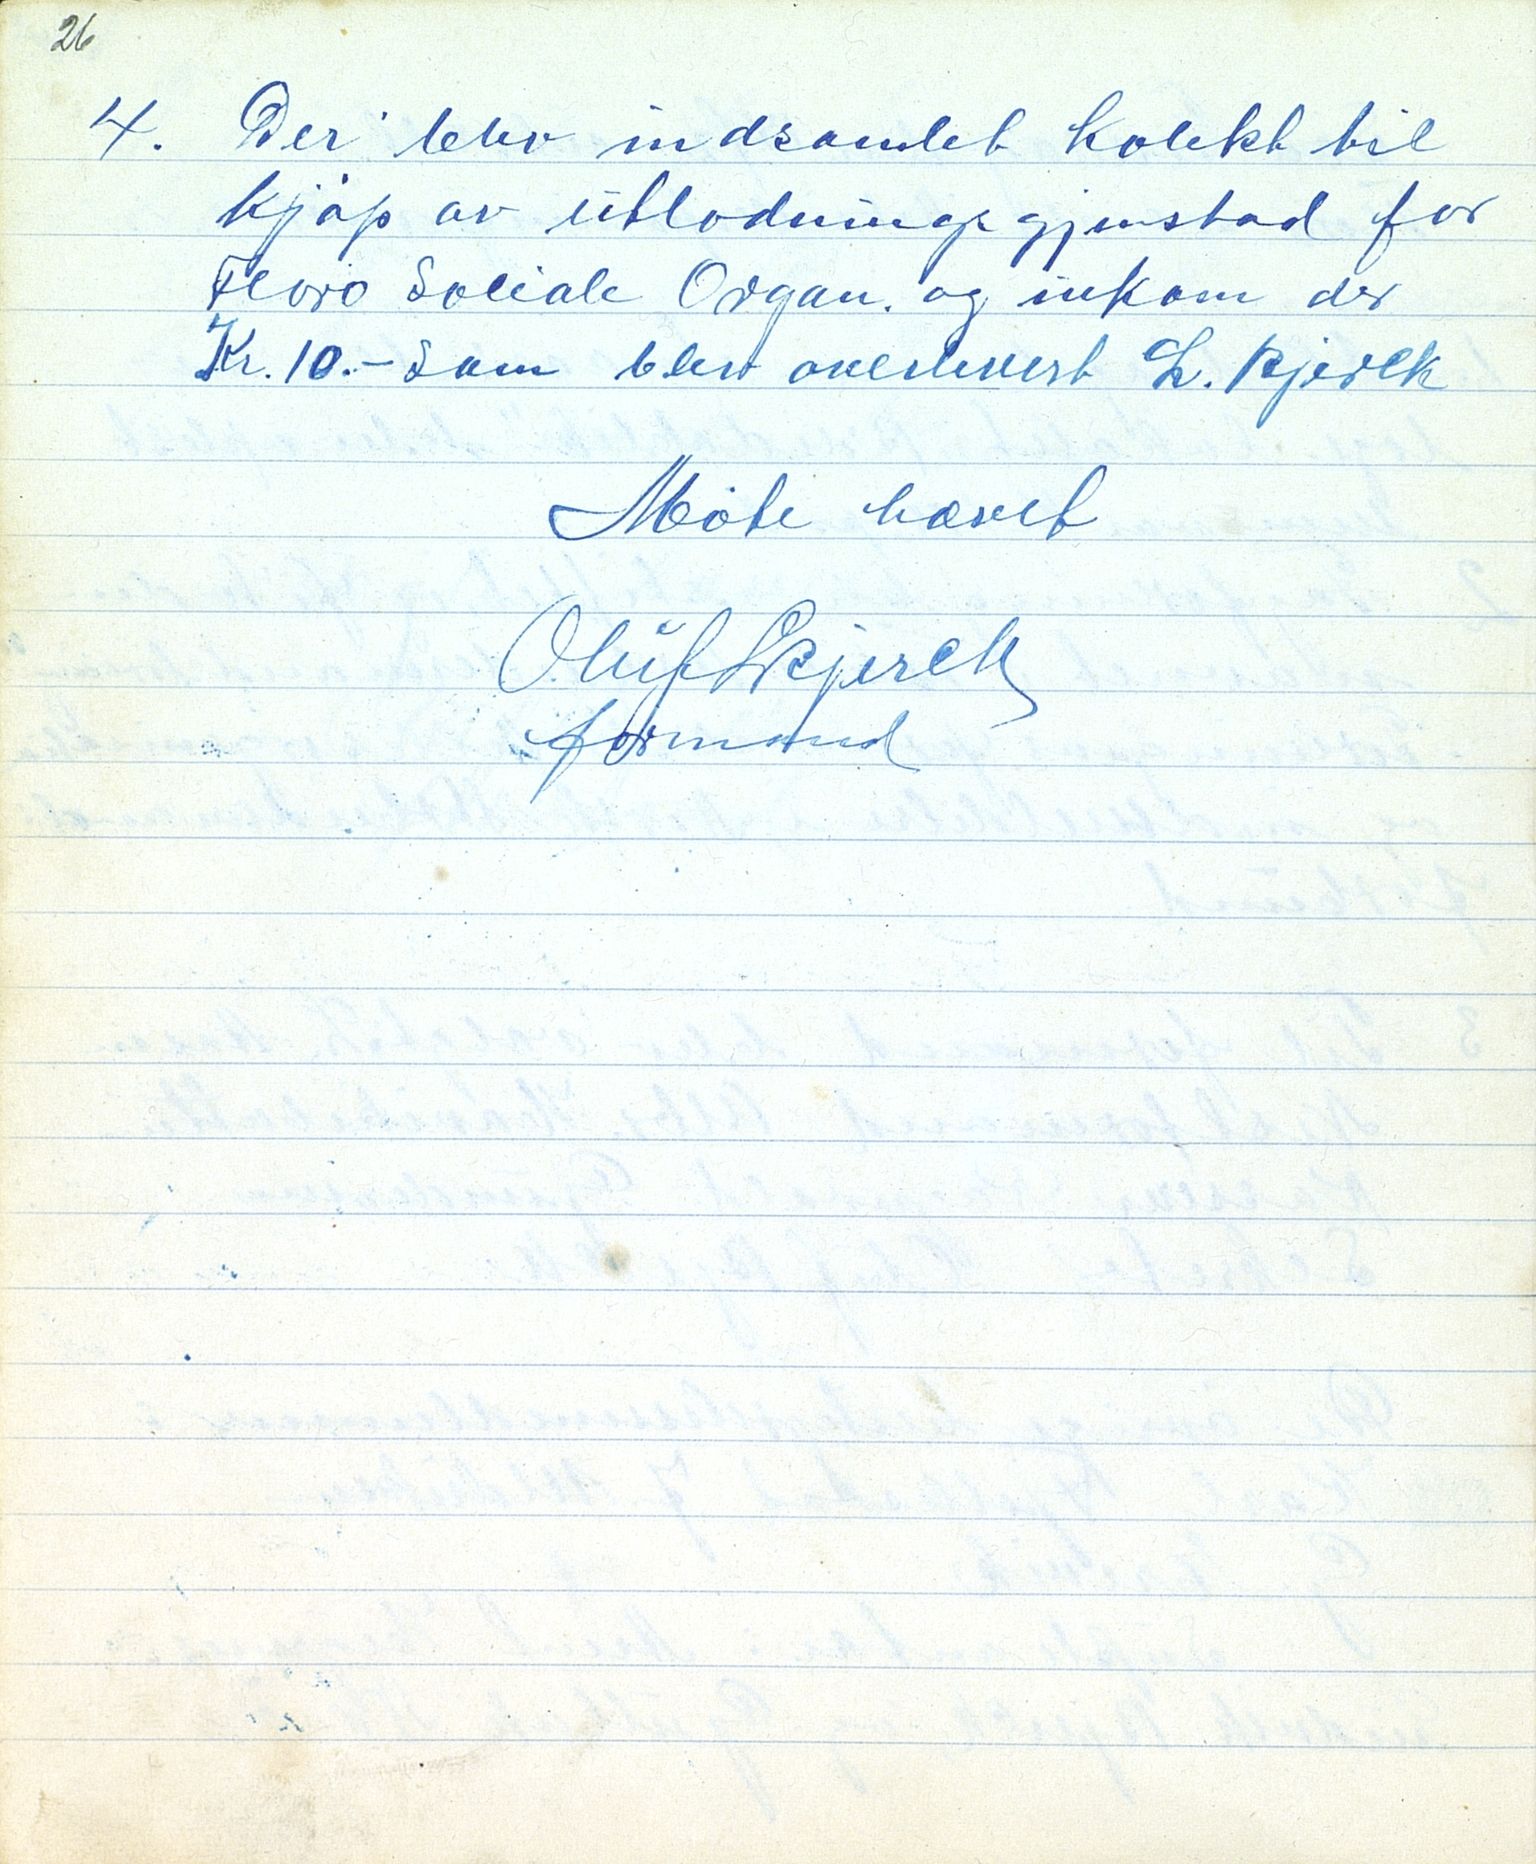 26
4. Der blev indsamlet kolekt til
kjøp av utlodningsgjenstad for
Florø Sosiale Organ. og inkom der
Kr. 10.- Som blev overlevert L. Bjerck
Møte hævet
Oluf L Bjerck
formand